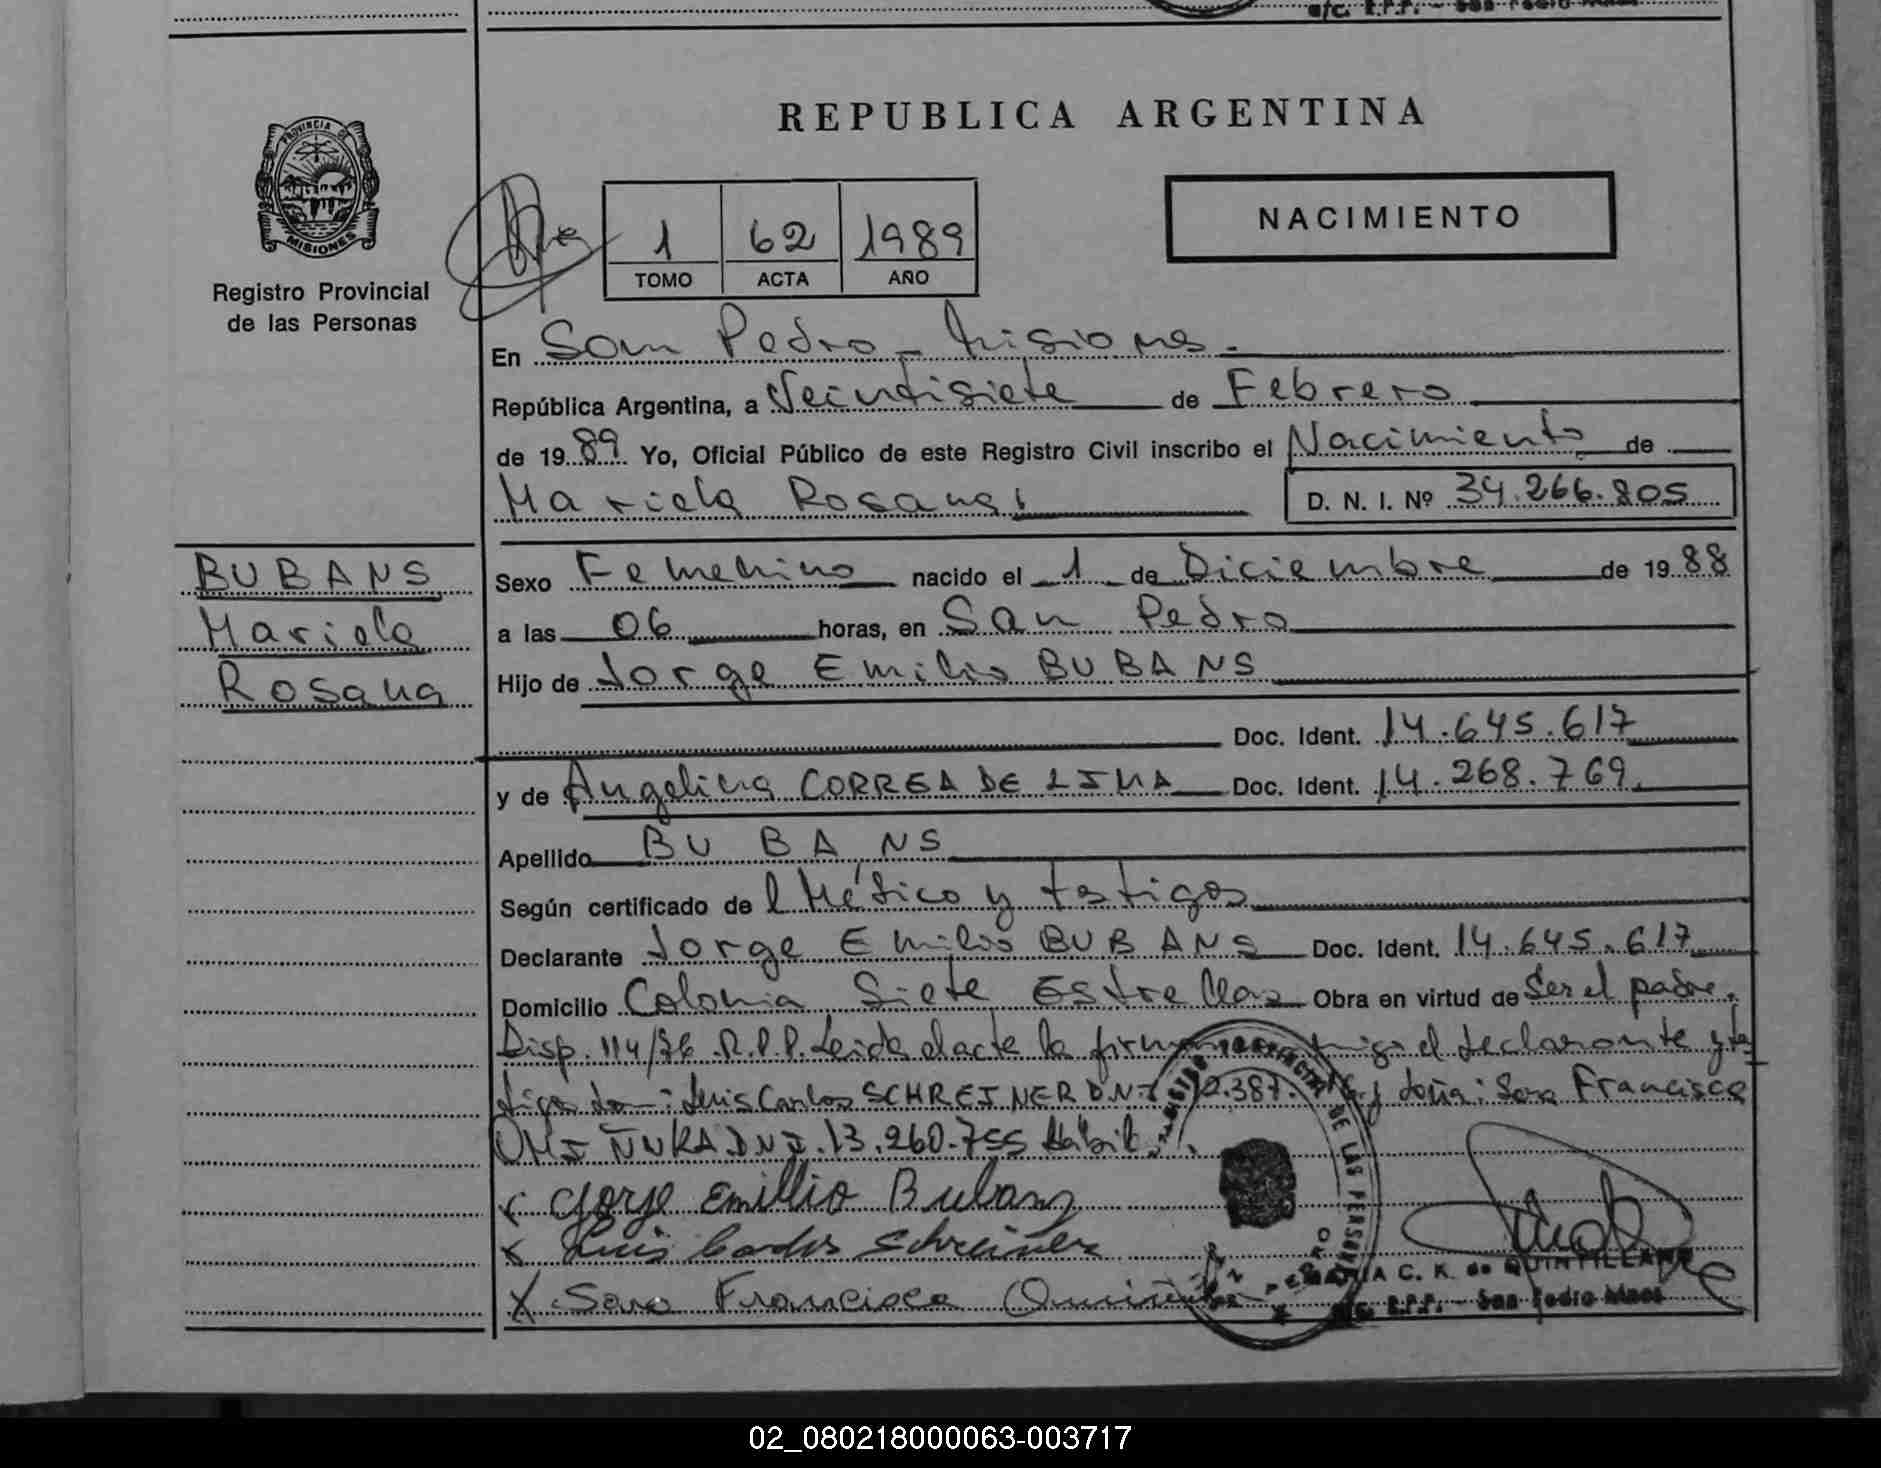 a/c. R.P.P. - San Pedro Mnes
REPUBLICA ARGENTINA
PROVINCIA DE
MISIONES
Registro Provincial
de las Personas
1 62 1989
TOMO ACTA AÑO
NACIMIENTO
En San Pedro - Misiones.
República Argentina, a Veintisiete de Febrero
de 1989 Yo, Oficial Público de este Registro Civil inscribo el Nacimiento de
Mariela Rosana;
D. N. I. Nº 34.266.805
BUBANS
Mariela
Rosana
Sexo Femenino nacido el 1 de Diciembre de 1988
a las 06 horas, en San Pedro
Hijo de Jorge Emilio BUBANS
Doc. Ident. 14.645.617
y de Angelina CORREA DE LIMA Doc. Ident. 14.268.769.
Apellido BUBANS
Según certificado del Médico y testigos
Declarante Jorge Emilio BUBANS Doc. Ident. 14.645.617
Domicilio Colonia Siete Estrellas Obra en virtud de Ser el padre.
Disp. 114/76 R.P.P. Leida el acta la el declarante y tes
tigos don: Luis Carlos SCHREINER D.N.I. y doña: Sara Francisca
DNI. 13.260.755 Hábil
x Jorge Emillio Bubans
x Luis Carlos Schreiner
x Sara Francisca
DE LAS PERSONAS
C. K. de QUINTILLAN
a/c. R.P.P. - San Pedro Mnes
02_080218000063-003717